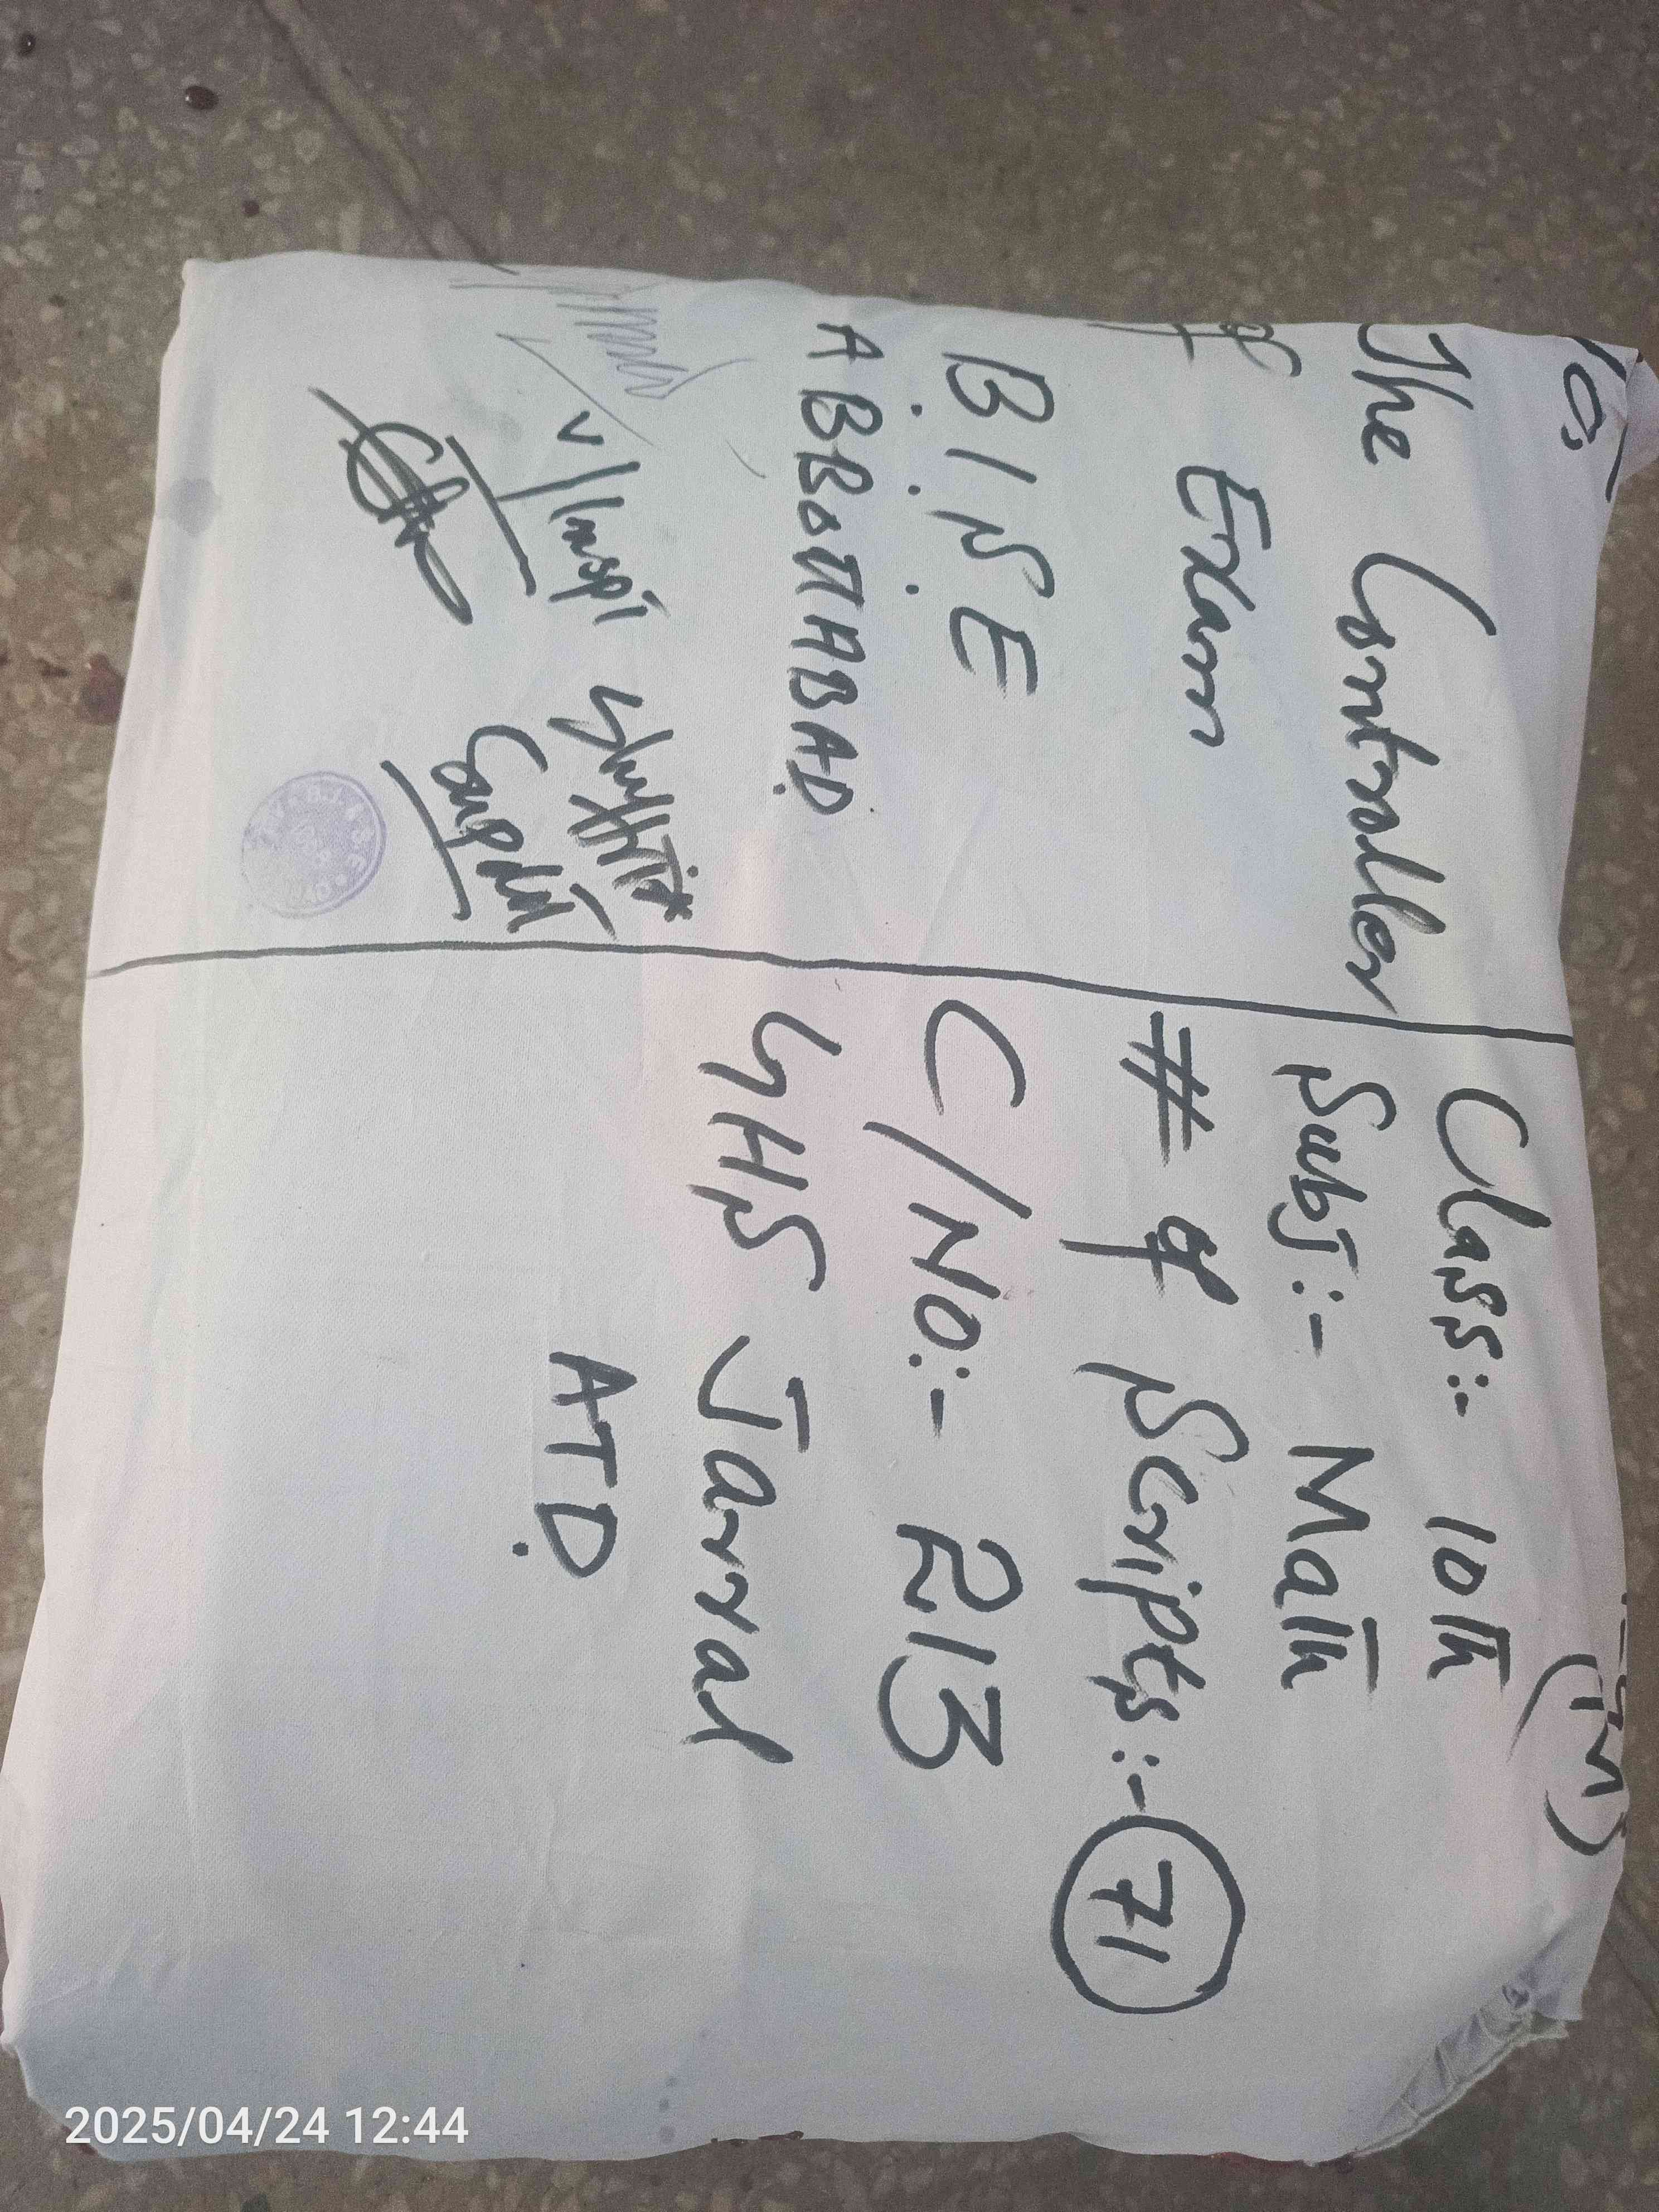 To,
The Controller
of
Exam
B.I.S.E
ABBOTTABAD
V/Inspi
Supdt
(M)
Class:- 10th
Subj:- Math
# of Scripts:- 71
C/No:- 213
GHS Jarral
ATD.
2025/04/24 12:44